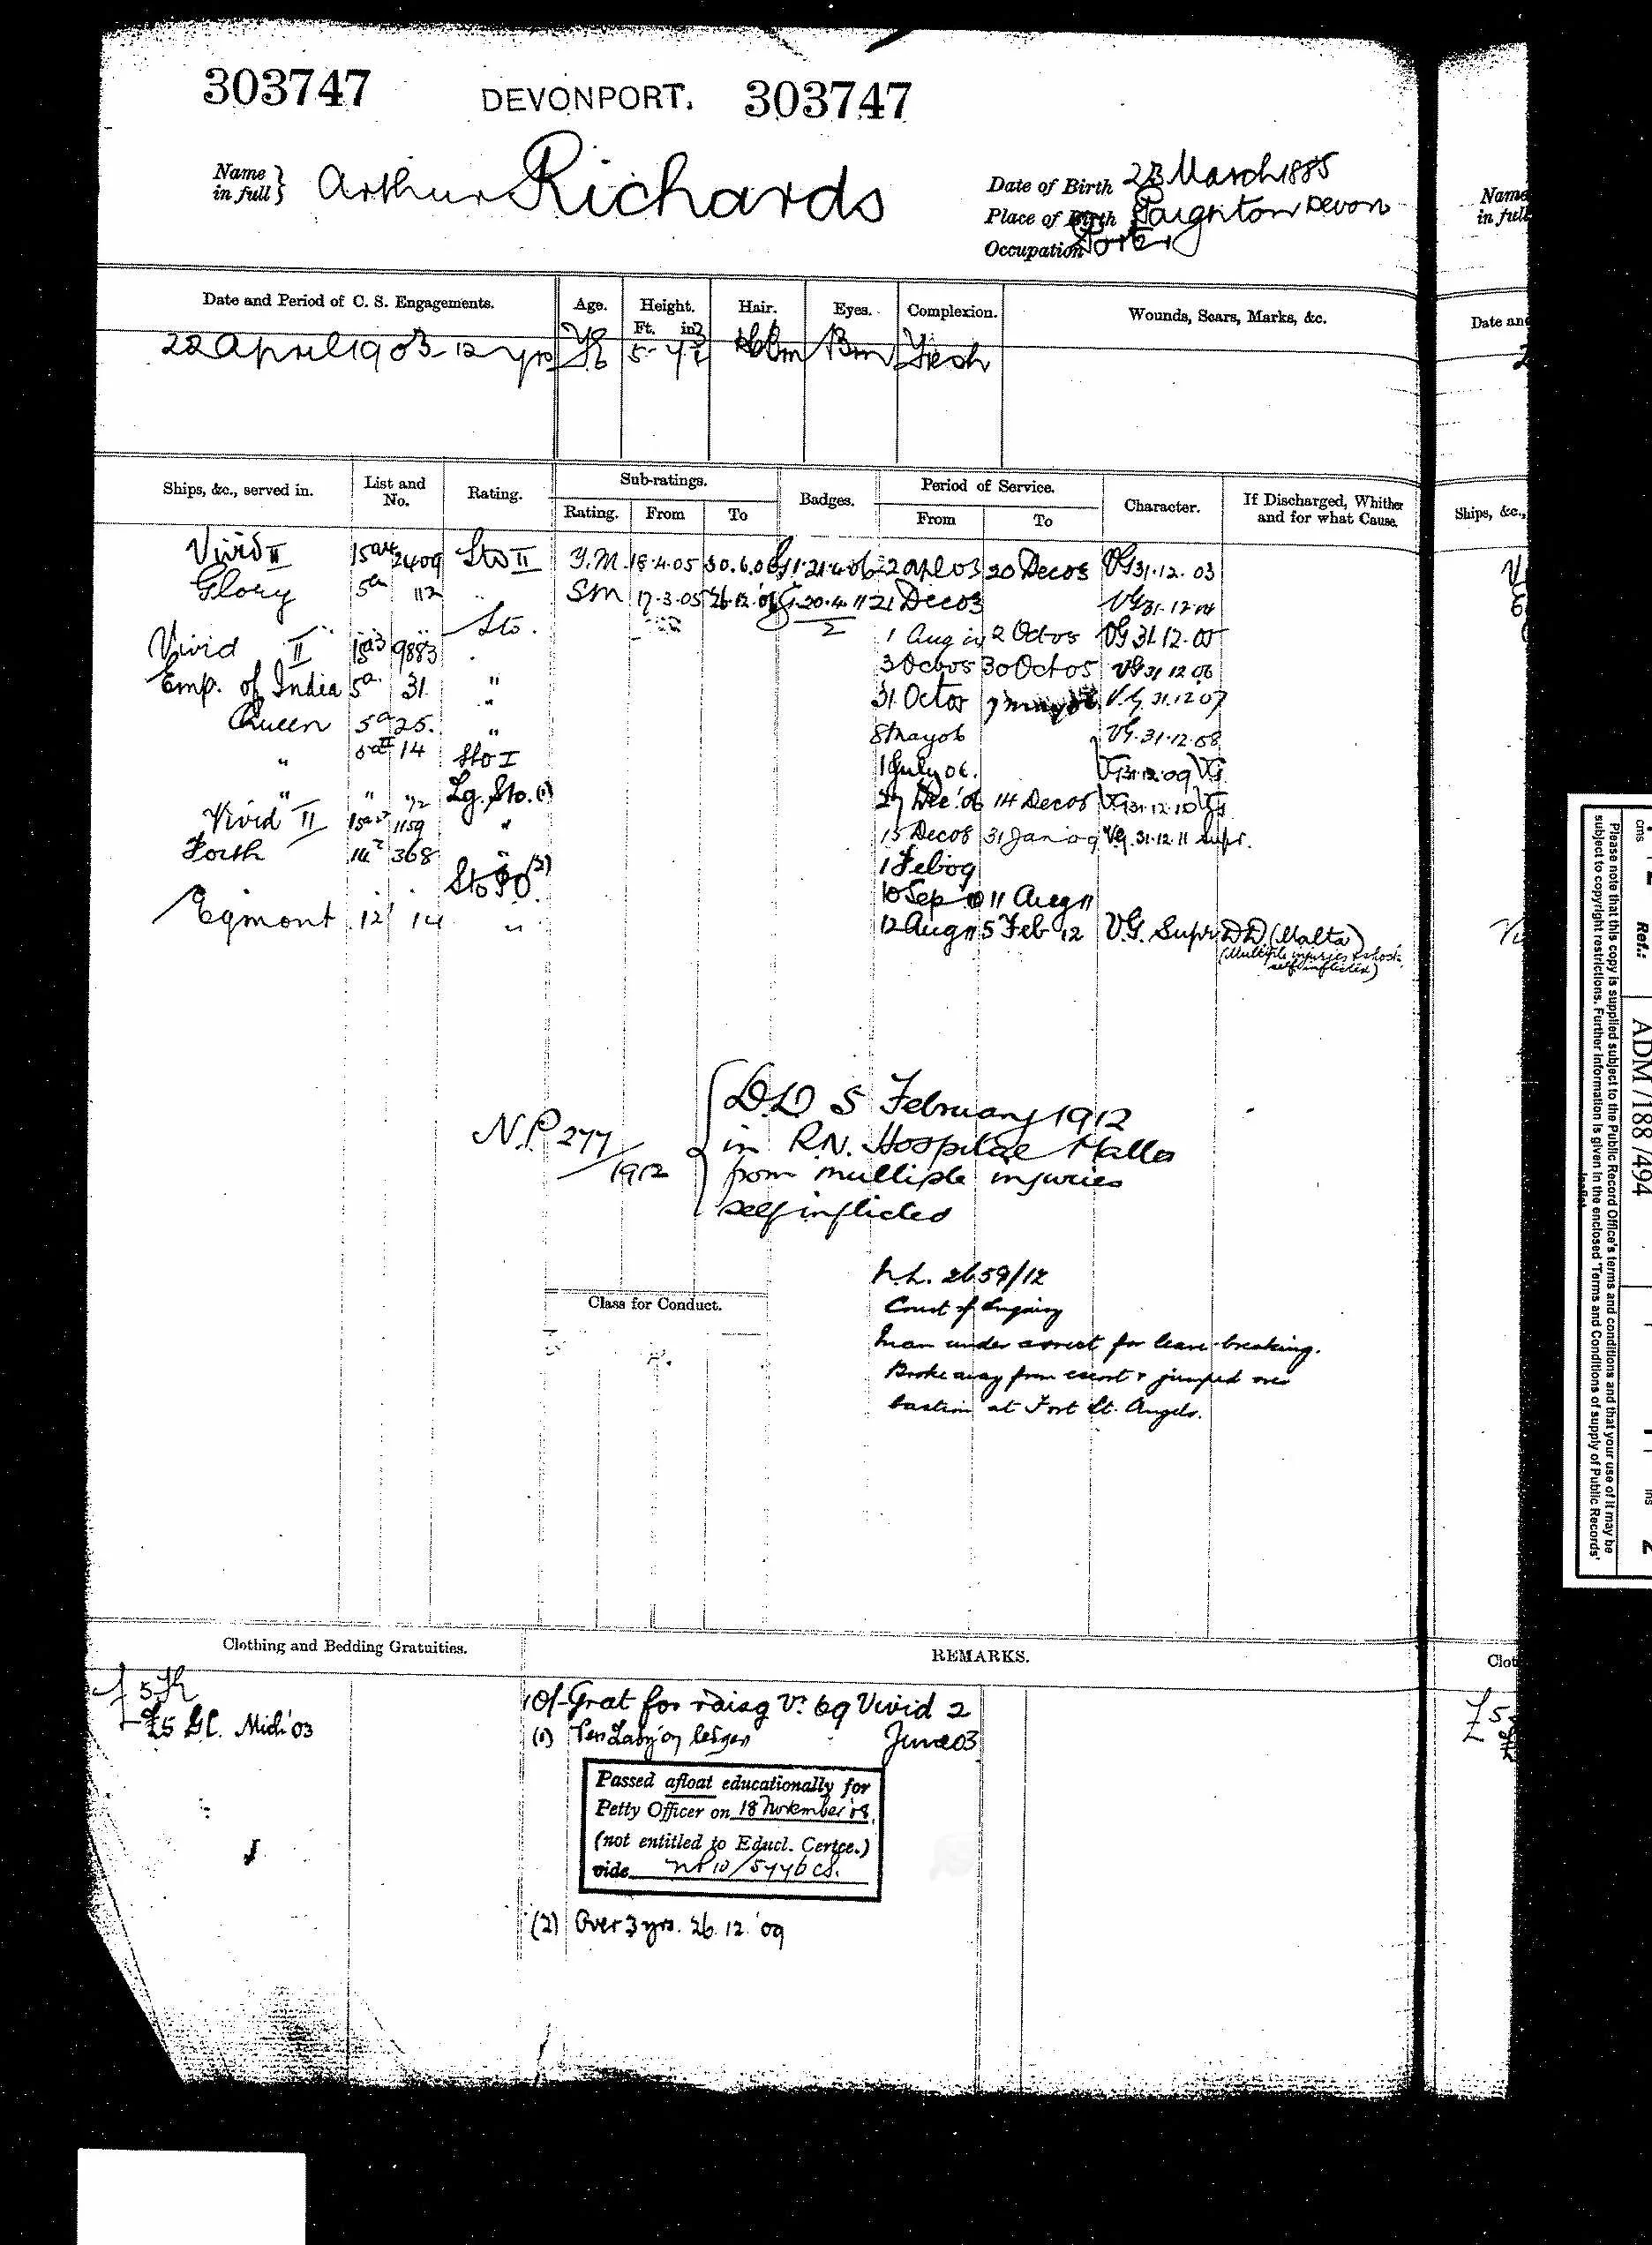 303747 DEVONPORT. 303747
Name in full } Arthur Richards
Date of Birth 23 March 1885
Place of Birth Paignton Devon
Occupation Porter
Name in full
Date and Period of C. S. Engagements. Age. Height. Hair. Eyes. Complexion. Wounds, Scars, Marks, &c. Date an
Ft. in
22 April 1903 - 12 yrs 18 5- Bn Fresh
Ships, &c., served in. List and No. Rating. Sub-ratings. Badges. Period of Service. Character. If Discharged, Whither and for what Cause. Ships, &c.,
Rating. From To From To
Vivid II 15 2409 Sto II Y.M. 18.4.05 30.6.06 G1.21.4.06 22 Apl 03 20 Dec 03 VG 31.12.03
Glory 5a 112 " SM 17.3.05 26.12.06 20.4.11 21 Dec 03 VG 31.12.04
Sto. 2 1 Aug 2 Oct 05 VG 31.12.05
Vivid II 15a3 9883 " 3 Oct 05 30 Oct 05 VG 31 12 06
Emp. of India 5a 31 " 31 Oct 05 7 May 06 V.G. 31.12 07
Queen 5a 25. " 8 May 06 VG. 31.12.08
" 5aII 14 Sto I 1 July 06. VG 31.12.09 VG
" " 72 Lg. Sto. (1) 27 Dec '06 14 Dec 08 VG 31.12.10 VG
Vivid II 15a2 1159 " 15 Dec 08 31 Jan 09 VG. 31.12.11 Supr.
Forth 368 " 1 Feb 09
Sto PO (2) 10 Sep 10 11 Aug 11
Egmont 12 14 " 12 Aug 11 5 Feb 12 V.G. Supr DD (Malta)
(Multiple injuries & shock self inflicted)
N.P. 277/1912 { D.D. 5 February 1912
in R.N. Hospital Malta
from multiple injuries
self inflicted
N.L. 2659/12
Court of Enquiry
Man under arrest for leave-breaking.
Broke away from escort & jumped over
bastion at Fort St. Angelo.
Class for Conduct.
Clothing and Bedding Gratuities. REMARKS. Clot
£5
£5 Gt. Mich '03
10/- Grat for raisg V. 69 Vivid 2
June 03
(1) ledger
Passed afloat educationally for
Petty Officer on 18 November '08.
(not entitled to Educl. Certce.)
vide NP 10/5776 CS.
(2) Over 3 yrs. 26.12.'09
Ref.: ADM/188/494
cms
ins 2
Please note that this copy is supplied subject to the Public Record Office's terms and conditions and that your use of it may be
subject to copyright restrictions. Further information is given in the enclosed 'Terms and Conditions of supply of Public Records'
leaflet